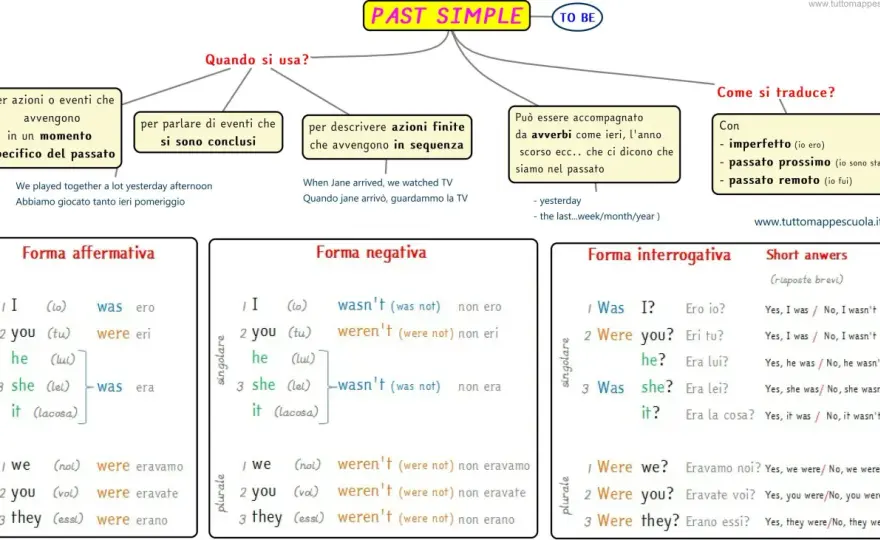 www.tuttomappes
PAST SIMPLE
TO BE
Quando si usa?
Come si traduce?
er azioni o eventi che
avvengono
in un momento
pecifico del passato
per parlare di eventi che
si sono conclusi
per descrivere azioni finite
che avvengono in sequenza
Può essere accompagnato
da avverbi come ieri, l'anno
scorso ecc.. che ci dicono che
siamo nel passato
Con
- imperfetto (io ero)
- passato prossimo (io sono sta
- passato remoto (io fui)
We played together a lot yesterday afternoon
Abbiamo giocato tanto ieri pomeriggio
When Jane arrived, we watched TV
Quando jane arrivò, guardammo la TV
- yesterday
- the last...week/month/year )
www.tuttomappescuola.it
Forma affermativa
1 I (io) was ero
2 you (tu) were eri
he (lui)
3 she (lei) was era
it (lacosa)
1 we (noi) were eravamo
2 you (voi) were eravate
3 they (essi) were erano
Forma negativa
singolare
1 I (io) wasn't (was not) non ero
2 you (tu) weren't (were not) non eri
he (lui)
3 she (lei) wasn't (was not) non era
it (lacosa)
plurale
1 we (noi) weren't (were not) non eravamo
2 you (voi) weren't (were not) non eravate
3 they (essi) weren't (were not) non erano
Forma interrogativa Short anwers
(risposte brevi)
singolare
1 Was I? Ero io? Yes, I was / No, I wasn't
2 Were you? Eri tu? Yes, I was / No, I wasn't
he? Era lui? Yes, he was / No, he wasn'
3 Was she? Era lei? Yes, she was/ No, she wasn
it? Era la cosa? Yes, it was / No, it wasn't
plurale
1 Were we? Eravamo noi? Yes, we were/ No, we were
2 Were you? Eravate voi? Yes, you were/No, you were
3 Were they? Erano essi? Yes, they were/No, they we